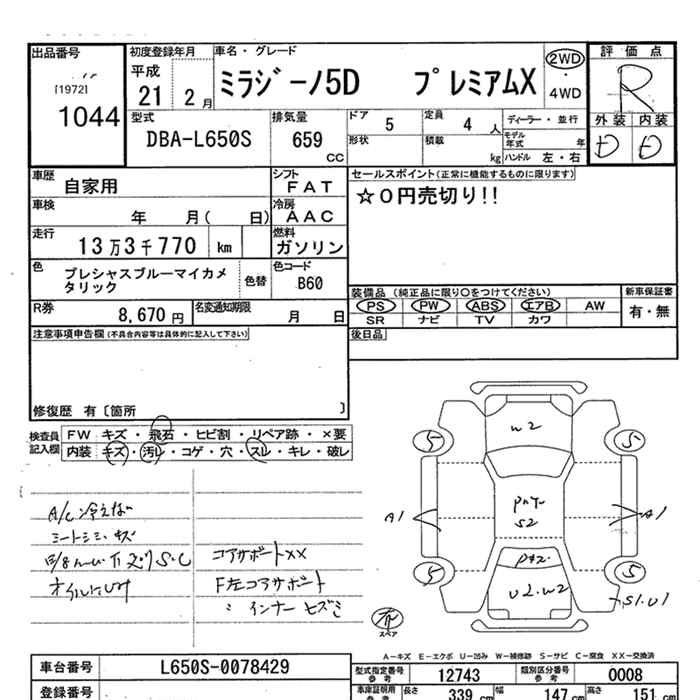 出品番号
[1972]
1044
初度登録年月
平成
21 2月
車名・グレード
ミラジーノ5D プレミアムX
2WD
・
4WD
評価点
R
外装 内装
D D
型式
DBA-L650S
排気量
659
CC
ドア 5
定員 4 人
形状
積載 kg
ディーラー・並行
モデル年式 年
ハンドル 左・右
車歴 自家用
シフト FAT
車検 年 月( 日)
冷房 AAC
走行 13万3千770 km
燃料 ガソリン
色 プレシャスブルーマイカメタリック
色替
色コード B60
R券 8,670円
名変通知期限 月 日
セールスポイント(正常に機能するものに限ります)
☆0円売切り!!
装備品 (純正品に限り○をつけてください)
新車保証書
PS PW ABS エアB AW
有・無
SR ナビ TV カワ
後日品
注意事項申告欄(不具合内容等は具体的に記入して下さい)
修復歴 有〔箇所 〕
検査員記入欄
FW キズ・飛石・ヒビ割・リペア跡・×要
内装 キズ・汚レ・コゲ・穴・スレ・キレ・破レ
A/C冷えず
シートシミ・キズ
コアサポートXX
F左コアサポート
インナーヒズミ
W2
5 5
A1 A1
S2
U2.W2
5 5
S1.U1
スペア
A-キズ E-エクボ U-凹み W-補修跡 S-サビ C-腐食 XX-交換済
車台番号 L650S-0078429
型式指定番号参考 12743
類別区分番号参考 0008
登録番号
車庫証明用参考
長さ 339 cm
幅 147 cm
高さ 151 cm